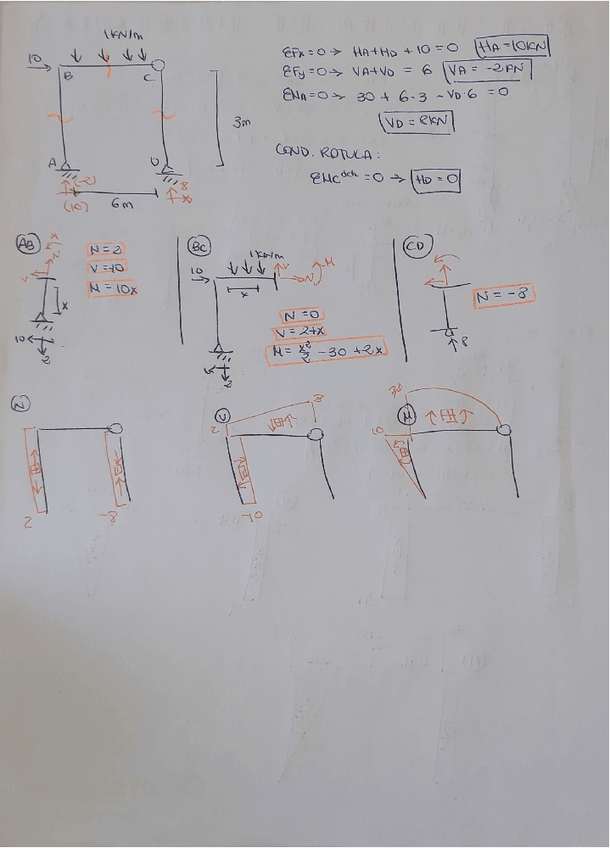 1KN/m
10
B
C
3m
A
D
(-2)
(10)
6m
8
x
ΣFx=0 → HA+HD+10=0 HA=10KN
ΣFy=0 → VA+VD = 6 VA = -2KN
ΣMA=0 → 30 + 6·3 - VD·6 = 0
VD = 8KN
COND. ROTULA:
ΣMC dch = 0 → HD=0
AB
N=2
V=10
M=10x
x
10
2
BC
1KN/m
10
V
M
N
x
N=0
V=2+x
M=x²/2 -30 +2x
2
CD
N=-8
8
N
2
-8
V
2
8
-10
M
30
10